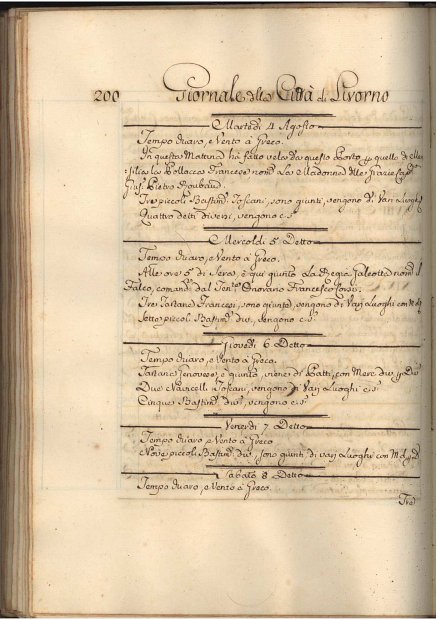 200 Giornale della Città di Livorno
Martedì 4 Agosto
Tempo Chiaro, e Vento à Greco.
In questa Mattina hà fatto vela da questo Porto p quello di
silia la Pollacca Francese nomta La Madonna delle Grazie Capn
Gius. Pietro Roubaud.
Tre piccoli Bastimti Toscani, sono giunti, vengono di Varj Luoghi
Quattro detti diversi, vengono c.s.
Mercoldì 5 Detto
Tempo Chiaro, e Vento à Greco.
Alle ore 5 di Sera, è qui giunto La Regia Galeotta nomta il
Falco, comandta dal Tente Giovano Francesco
Tre Tartane Francesi, sono giunte, vengono di Varj Luoghi con
Sette piccoli Bastimti divsi, vengono c.s.
Giovedì 6 Detto
Tempo Chiaro, e Vento à Greco.
Tartana Genovese, è giunta, viene di Patti, con Merci divse
Due Navicelli Toscani, vengono di Varj Luoghi c.s.
Cinque Bastimti divsi, vengono c.s.
Venerdì 7 Detto
Tempo Chiaro, e Vento à Greco
Nove piccoli Bastimti divsi, sono giunti di varj Luoghi con
Sabato 8 Detto
Tempo Chiaro, e Vento à Greco.
Tre